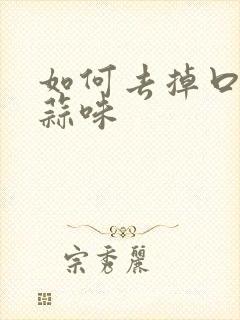 如何去掉口
蒜味
宗秀麗